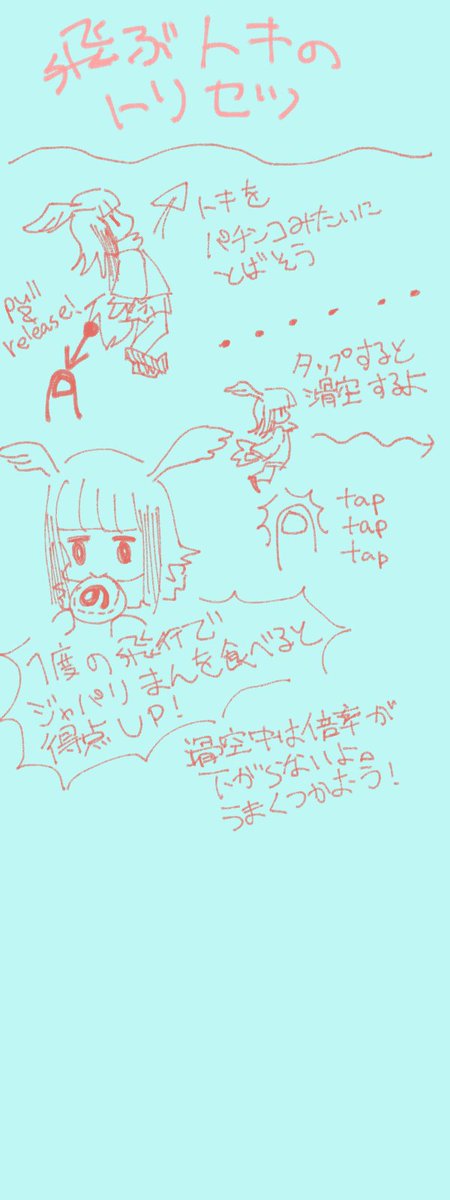 飛ぶトキの
トリセツ
トキを
パチンコみたいに
とばそう
pull
&
release!
タップすると
滑空するよ
tap
tap
tap
の
1度の飛行で
ジャパリまんを食べると
得点UP!
滑空中は倍率が
下がらないよ。
うまくつかおう!